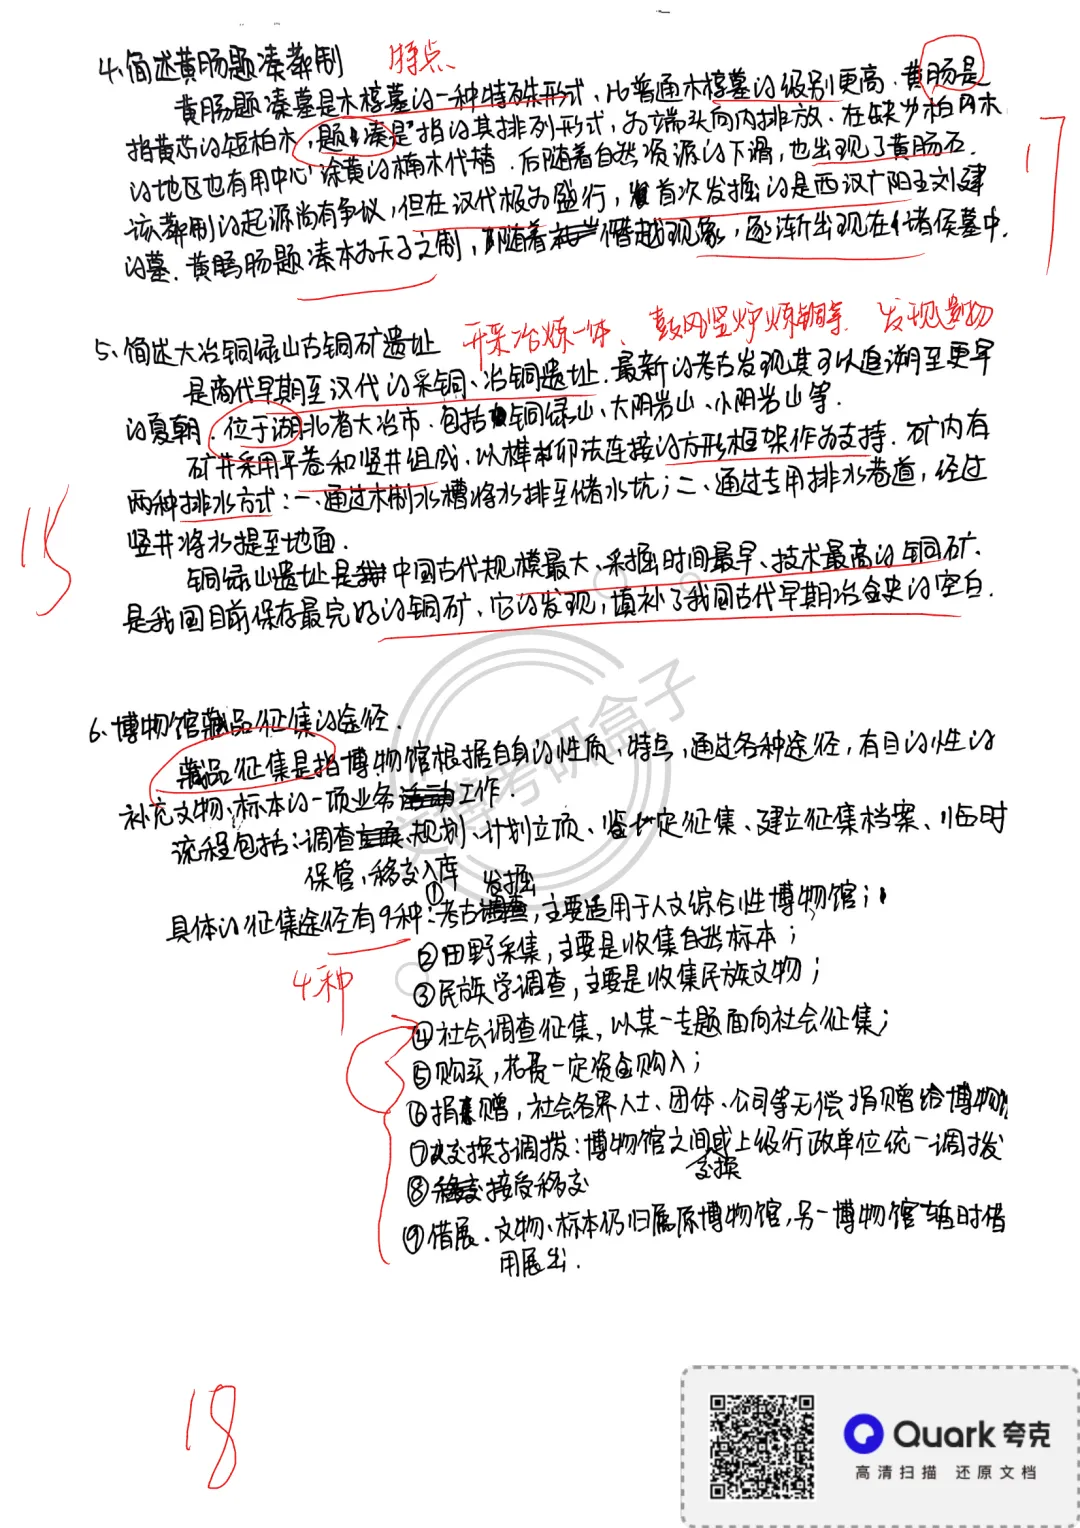 4、简述黄肠题凑葬制 特点
黄肠题凑墓是木椁墓的一种特殊形式,比普通木椁墓的级别更高.黄肠是
指黄芯的短柏木,题凑是指的其排列形式,为端头向内排放.在缺少柏木
的地区也有用中心涂黄的楠木代替.后随着自然资源的下滑,也出现了黄肠石.
该葬制的起源尚有争议,但在汉代极为盛行,首次发掘的是西汉广阳王刘建
的墓.黄肠题凑本为天子之制,随着僭越现象,逐渐出现在诸侯墓中.
17
5、简述大冶铜绿山古铜矿遗址 开采冶炼一体、鼓风竖炉炼铜等. 发现遗物
是商代早期至汉代的采铜、冶铜遗址.最新的考古发现其可以追溯至更早
的夏朝.位于湖北省大冶市.包括铜绿山、大阴岩山、小阴岩山等.
矿井采用平巷和竖井组成,以榫卯法连接的方形框架作为支持.矿内有
两种排水方式:一、通过木制水槽将水排至储水坑;二、通过专用排水巷道,经过
竖井将水提至地面.
铜绿山遗址是中国古代规模最大、采掘时间最早、技术最高的铜矿、
是我国目前保存最完好的铜矿、它的发现,填补了我国古代早期冶金史的空白.
15
6、博物馆藏品征集的途径.
藏品征集是指博物馆根据自身的性质,特点,通过各种途径,有目的性的
补充文物、标本的一项业务工作.
流程包括:调查、规划、计划立项、鉴定征集、建立征集档案、临时
保管、移交入库
具体的征集途径有9种:①考古发掘,主要适用于人文综合性博物馆;
②田野采集,主要是收集自然标本;
4种
③民族学调查,主要是收集民族文物;
④社会调查征集,以某一专题面向社会征集;
⑤购买,花费一定资金购入;
⑥捐赠,社会各界人士、团体、公司等无偿捐赠给博物馆
⑦交换与调拨:博物馆之间交换或上级行政单位统一调拨
⑧接受移交
⑨借展.文物、标本仍归属原博物馆,另一博物馆暂时借
用展出.
18
文博考研盒子
Quark夸克
高清扫描 还原文档